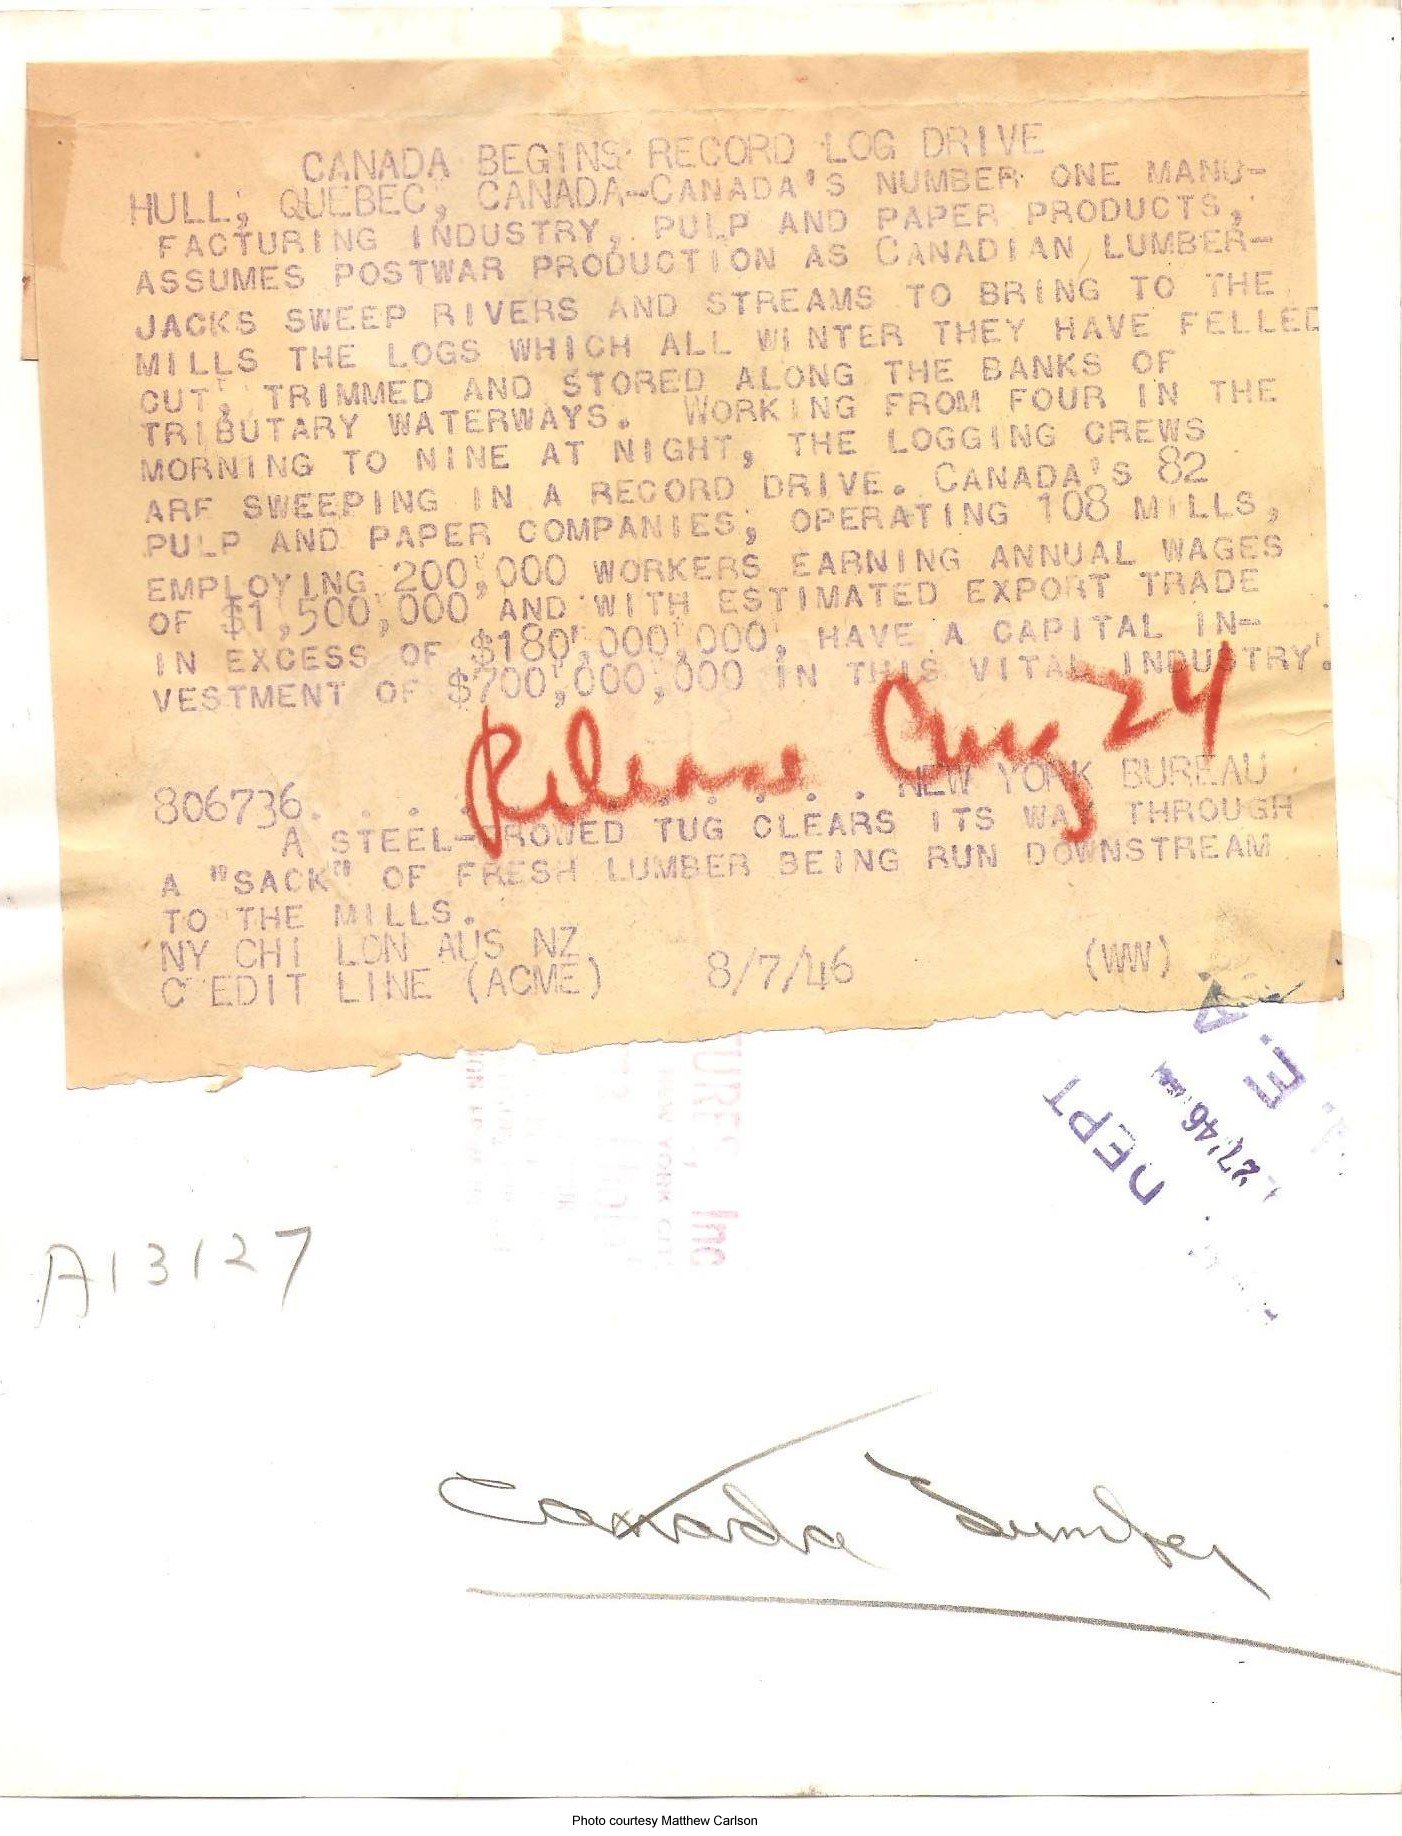 CANADA BEGINS RECORD LOG DRIVE
HULL, QUEBEC, CANADA—CANADA'S NUMBER ONE MANU-
FACTURING INDUSTRY, PULP AND PAPER PRODUCTS,
ASSUMES POSTWAR PRODUCTION AS CANADIAN LUMBER-
JACKS SWEEP RIVERS AND STREAMS TO BRING TO THE
MILLS THE LOGS WHICH ALL WINTER THEY HAVE FELLED
CUT, TRIMMED AND STORED ALONG THE BANKS OF
TRIBUTARY WATERWAYS. WORKING FROM FOUR IN THE
MORNING TO NINE AT NIGHT, THE LOGGING CREWS
ARE SWEEPING IN A RECORD DRIVE. CANADA'S 82
PULP AND PAPER COMPANIES, OPERATING 108 MILLS,
EMPLOYING 200,000 WORKERS EARNING ANNUAL WAGES
OF $1,500,000 AND WITH ESTIMATED EXPORT TRADE
IN EXCESS OF $180,000,000, HAVE A CAPITAL IN-
VESTMENT OF $700,000,000 IN THIS VITAL INDUSTRY.
Release Aug 24
806736. . . . . . . . . . . . NEW YORK BUREAU
A STEEL-PROWED TUG CLEARS ITS WAY THROUGH
A "SACK" OF FRESH LUMBER BEING RUN DOWNSTREAM
TO THE MILLS.
NY CHI LON AUS NZ
C EDIT LINE (ACME) 8/7/46 (WW)
E. A.
27 '46
DEPT
TURES, Inc
NEW YORK CITY
A13127
Canada Lumber
Photo courtesy Matthew Carlson